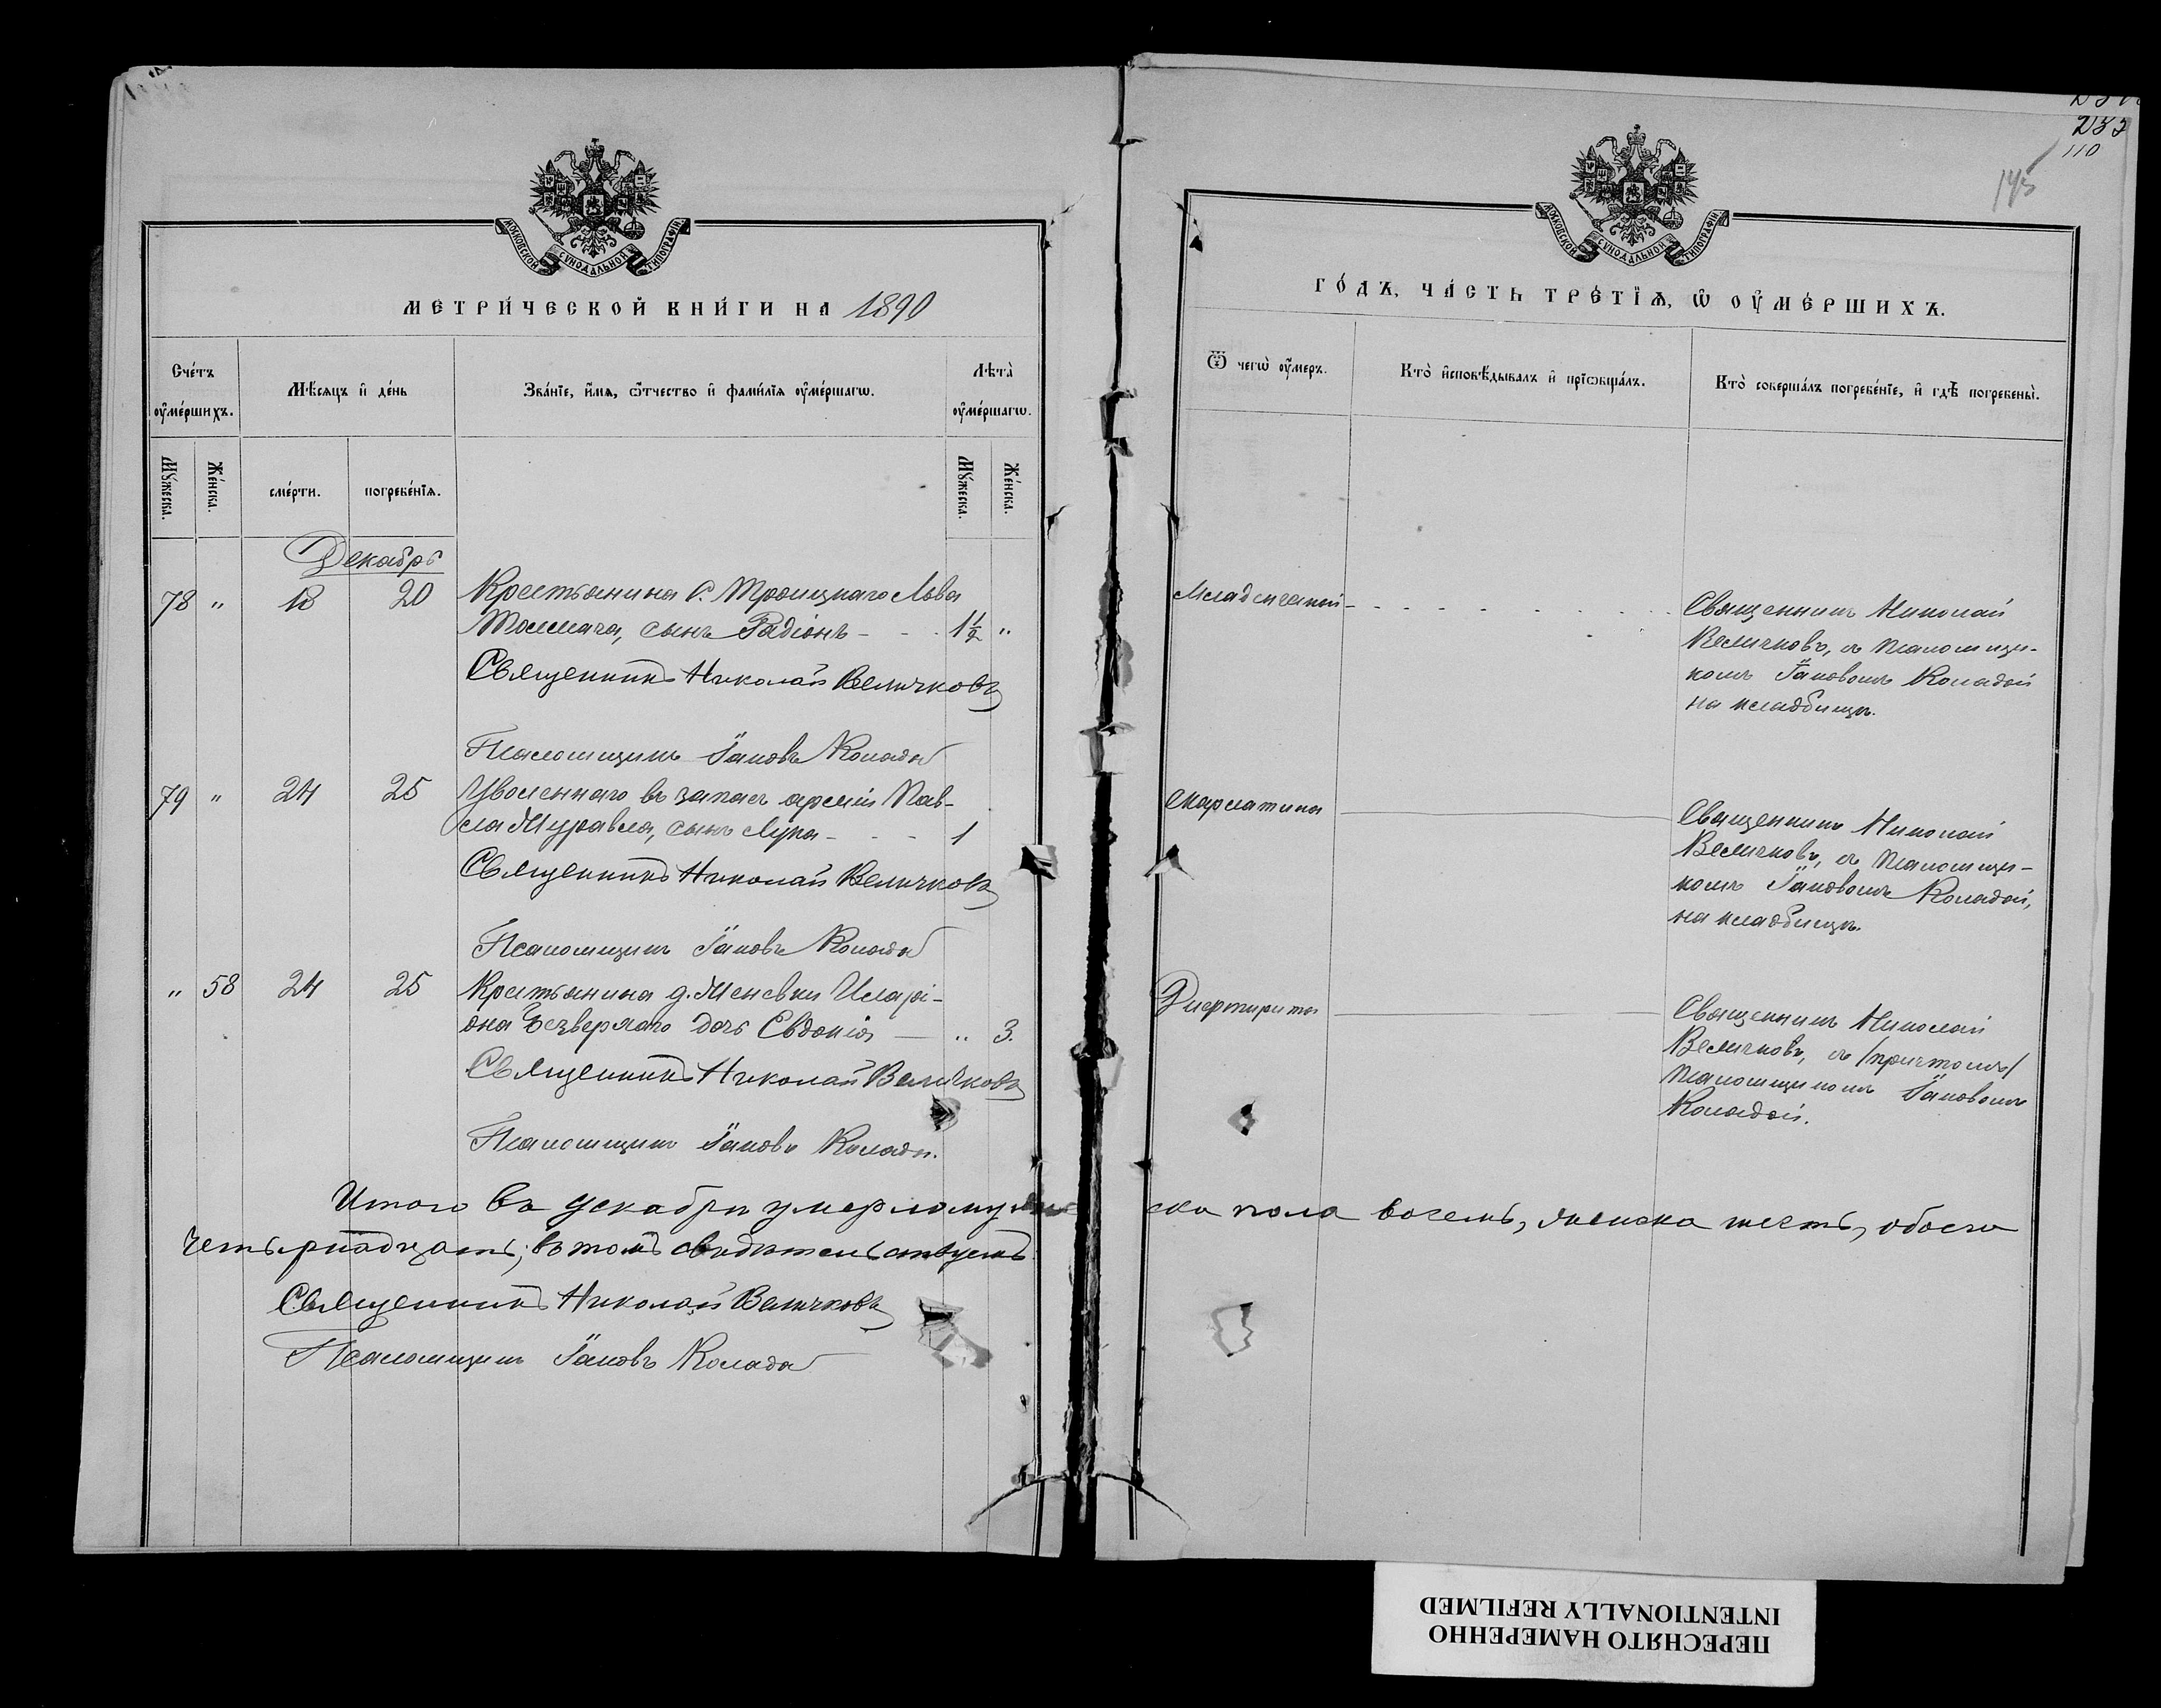 МОСКОВСКОЙ СѴНОДАЛЬНОЙ ТИПОГРАФІИ.
МЕТРИ́ЧЕСКОЙ КНИ́ГИ НА 1890
Сче́тъ ᲂу҆ме́ршихъ.
Мѣ́сяцъ и҆ де́нь
Зва́нїе, и҆́мя, ѻ҆́тчество и҆ фами́лїя ᲂу҆ме́ршагѡ.
Лѣта̀ ᲂу҆ме́ршагѡ.
Мꙋ́жеска.
Же́нска.
сме́рти.
погребе́нїя.
Мꙋ́жеска.
Же́нска.
Декабрь
78 " 18 20 Крестьянина с. Троицкаго Льва
Толмача, сынъ Радіонъ - - . 1½ "
Священникъ Николай Величковъ
Псаломщикъ Іаковъ Колада
79 " 24 25 Уволеннаго въ запасъ арміи Пав-
ла Журавля, сынъ Лука - - - 1
Священникъ Николай Величковъ
Псаломщикъ Іаковъ Колада
" 58 24 25 Крестьянина д. Меневки Иларі-
она Безверхаго дочь Евдокія — " 3.
Священникъ Николай Величковъ
Псаломщикъ Іаковъ Колада.
Итого въ декабрѣ умерло муже
четырнадцать; въ томъ свидѣтельствуемъ
Священникъ Николай Величковъ
Псаломщикъ Іаковъ Колада
235
110
145
МОСКОВСКОЙ СѴНОДАЛЬНОЙ ТИПОГРАФІИ.
ГО́ДЪ, ЧА́СТЬ ТРЕ́ТЇѦ, Ѡ҆ ОУ҆МЕ́РШИХЪ.
Ѿ чегѡ̀ ᲂу҆́мер.
Кто̀ и҆сповѣ́дывалъ и҆ прїѡбща́лъ.
Кто̀ соверша́лъ погребе́нїе, и҆ гдѣ̀ погребены̀.
Младенческой - - - - - - - - - Священникъ Николай
Величковъ, съ псаломщи-
комъ Іаковомъ Коладой
на кладбищѣ.
Скарлатина — Священникъ Николай
Величковъ, съ псаломщи-
комъ Іаковомъ Коладой,
на кладбищѣ.
Дифтирита — Священникъ Николай
Величковъ, съ /причтомъ/
псаломщикомъ Іаковомъ
Коладой.
ска пола восемь, женска шесть, обоего
ПЕРЕСНЯТО НАМЕРЕННО
INTENTIONALLY REFILMED